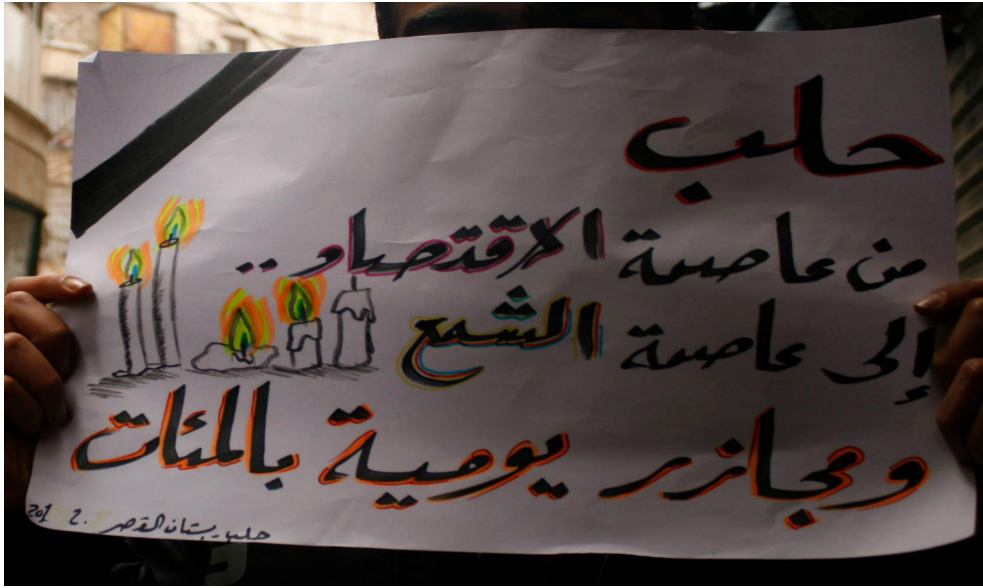 حلب
من عاصمة الاقتصاد ..
إلى عاصمة الشمع
ومجازر يومية بالمئات
حلب - بستان القصر 2.